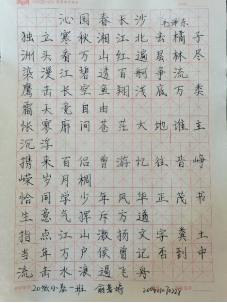 沁园春长沙
毛泽东
独立寒秋湘江北去橘子
洲头看万山红遍层林尽
染漫江碧透百舸争流
鹰击长空鱼翔浅底万类
霜天竞自由
怅寥廓问苍茫大地谁主
沉浮
携来百侣曾游忆往昔峥
嵘岁月稠
恰同学少年风华正茂书
生意气挥斥方遒
指点江山激扬文字粪土
当年万户侯曾记否到中
流击水浪遏飞舟